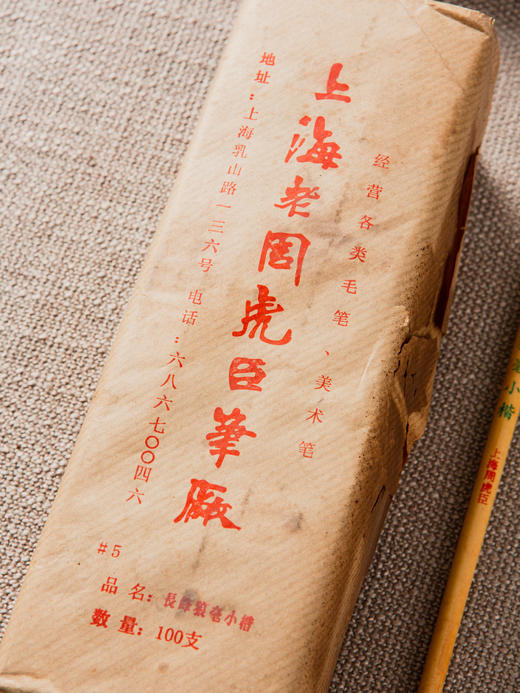 经营各类毛笔、美术笔
上海老周虎臣笔厂
地址：上海乳山路一三六号 电话：六八六七〇〇四六
#5
品名：長鋒狼毫小楷
数量：100支
小楷
上海周虎臣